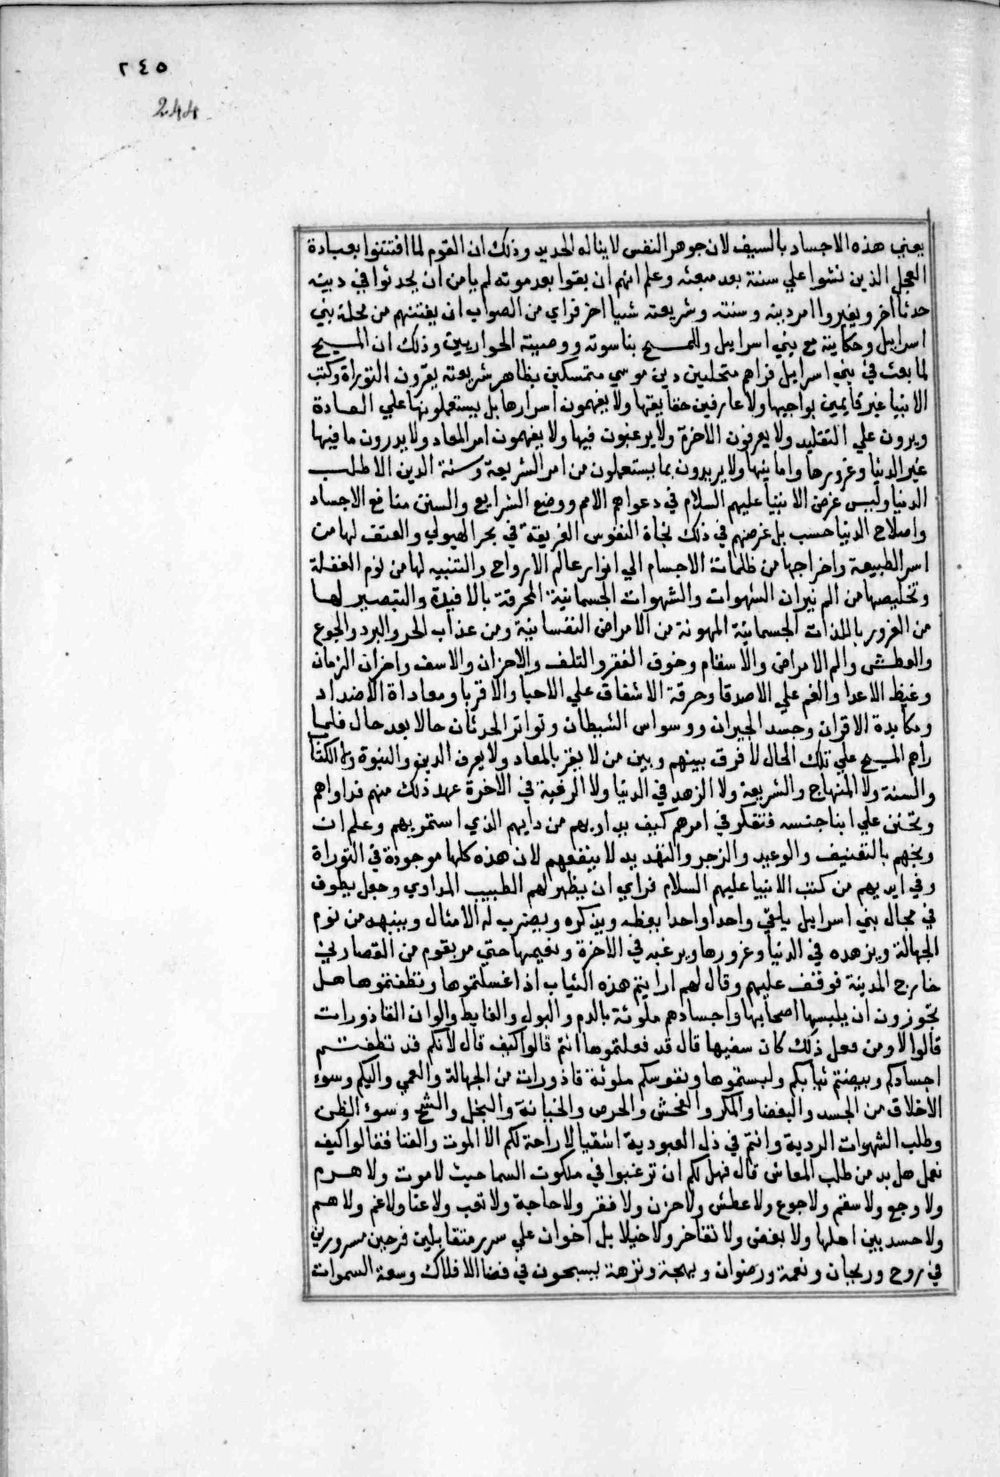 ٢٤٥
244
يعني هذه الاجساد بالسيف لان جوهر النفس لا يناله الحديد وذلك ان القوم لما افتتنوا بعبادة
العجل الذين نشوا علي سنة بعد مبعثه وعلم انهم ان بقوا بعد موته لم يامن ان يحدثوا في دينه
حدثا اخر ويغيروا امر دينه وسنته وشريعته شيا اخر فراي من الصواب ان يفتنهم من محلة بني
اسراييل وحكايته مع بني اسراييل والمسيح بناسوته ووصيته الحواريين وذلك ان المسيح
لما بعث في بني اسراييل فراهم منتحلين دين موسي متمسكين بظاهر شريعته يقرون التوراة وكتب
الانبيا غير قايمين بواجبها ولا عارفين حقايقها ولا يفهمون اسرارها بل يستعملونها علي العادة
ويرون علي التقليد ولا يعرفون الاخرة ولا يرغبون فيها ولا يفهمون امر المعاد ولا يدرون ما فيها
غير الدنيا وغرورها وامانيها ولا يريدون بما يستعملون من امر الشريعة وسنة الدين الا طلب
الدنيا وليس غرض الانبيا عليهم السلام في دعواهم الامم ووضع الشرايع والسنن منافع الاجساد
واصلاح الدنيا حسب بل غرضهم في ذلك نجاة النفوس الغريقة في بحر الهيولي والعتق لها من
اسر الطبيعة واخراجها من ظلمات الاجسام الي انوار عالم الارواح والتنبيه لها من نوم الغفلة
وتخليصها من الم نيران الشهوات والشهوات الجسمانية المحرقة بالافيدة والتبصير لها
من الغرور باللذات الجسمانية المهونة من الامراض النفسانية ومن عذاب الحر والبرد والجوع
والعطش والم الامراض والاسقام وخوف الفقر والتلف والاحزان والاسف واحزان الزمان
وغيظ الاعدا والغم علي الاصدقا وحرقة الاشفاق علي الاحبا والاقربا ومعاداة الاضداد
ومكايدة الاقران وحسد الجيران ووسواس الشيطان وتواتر الحدثان حالا بعد حال فلما
راهم المسيح علي تلك الحال لا فرق بينهم وبين من لا يقر بالمعاد ولا يعرف الدين والنبوة ولا الكتاب
والسنة ولا المنهاج والشريعة ولا الزهد في الدنيا ولا الرغبة في الاخرة عهد ذلك منهم فداواهم
وتحنن علي ابنا جنسه فتفكر في امرهم كيف يداويهم من دايهم الذي استمر بهم وعلم ان
وبخهم بالتعنيف والوعيد والزجر والتهديد لا ينفعهم لان هذه كلها موجودة في التوراة
وفي ايديهم من كتب الانبيا عليهم السلام فراي ان يظهر لهم الطبيب المداوي وجعل يطوف
في محال بني اسراييل يلقي واحدا واحدا يعظه ويذكره ويضرب له الامثال وينبهه من نوم
الجهالة ويزهده في الدنيا وغرورها ويرغبه في الاخرة ونعيمها حتي مر بقوم من القصارين
خارج المدينة فوقف عليهم وقال لهم ارايتم هذه الثياب اذا غسلتموها ونظفتموها هل
تجوزون ان يلبسها اصحابها واجسادهم ملوثة بالدم والبول والغايط والوان القاذورات
قالوا لا ومن فعل ذلك كان سفيها قال قد فعلتموها انتم قالوا كيف قال لانكم قد نظفتم
اجسادكم وبيضتم ثيابكم ولبستموها ونفوسكم ملوثة قاذورات من الجهالة والعمي والبكم وسوء
الاخلاق من الحسد والبغضا والمكر والفحش والحرص والخيانة والبخل والشح وسوء الظن
وطلب الشهوات الردية وانتم في ذل العبودية اشقيا لا راحة لكم الا الموت والفنا فقالوا كيف
نعمل هل بد من طلب المعاش قال فهل لكم ان ترغبوا في ملكوت السما حيث لا موت ولا هرم
ولا وجع ولا سقم ولا جوع ولا عطش ولا حزن ولا فقر ولا حاجة ولا تعب ولا عنا ولا غم ولا هم
ولا حسد بين اهلها ولا بغض ولا تفاخر ولا خيلا بل اخوان علي سرر متقابلين فرحين مسرورين
في روح وريحان ونعمة ورضوان وبهجة ونزهة يسبحون في فضا الافلاك وسعة السموات